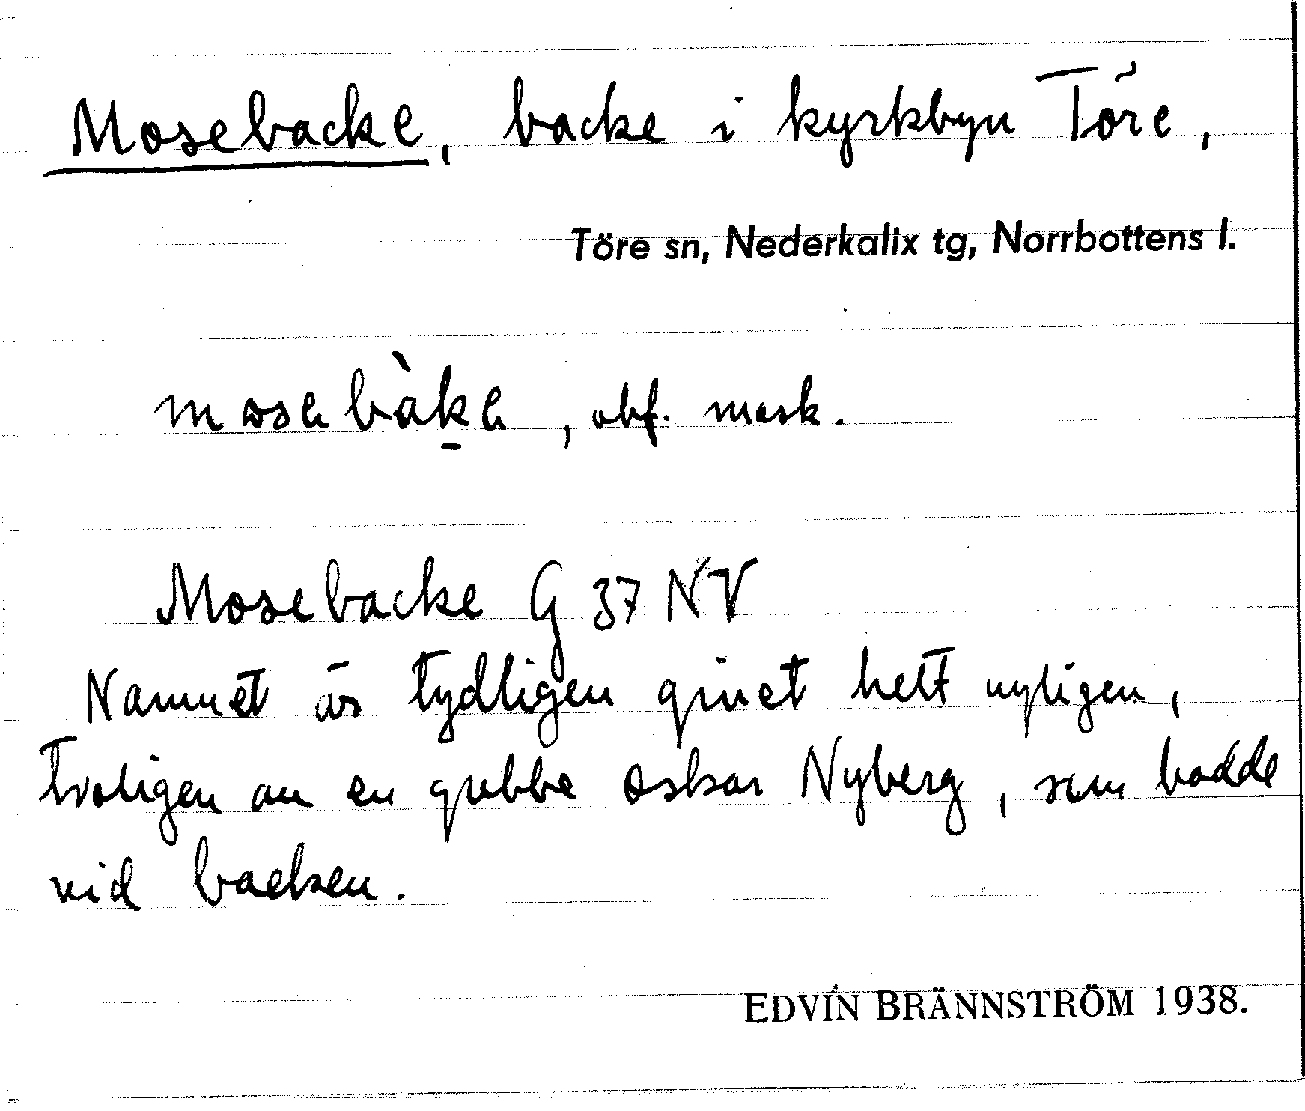 Mosebacke, backe i kyrkbyn Töre,
Töre sn, Nederkalix tg, Norrbottens l.
mosebàke, obf. mask.
Mosebacke G 37 NV
Namnet är tydligen givet helt nyligen,
troligen av en gubbe Oskar Nyberg, som bodde
vid backen.
EDVIN BRÄNNSTRÖM 1938.